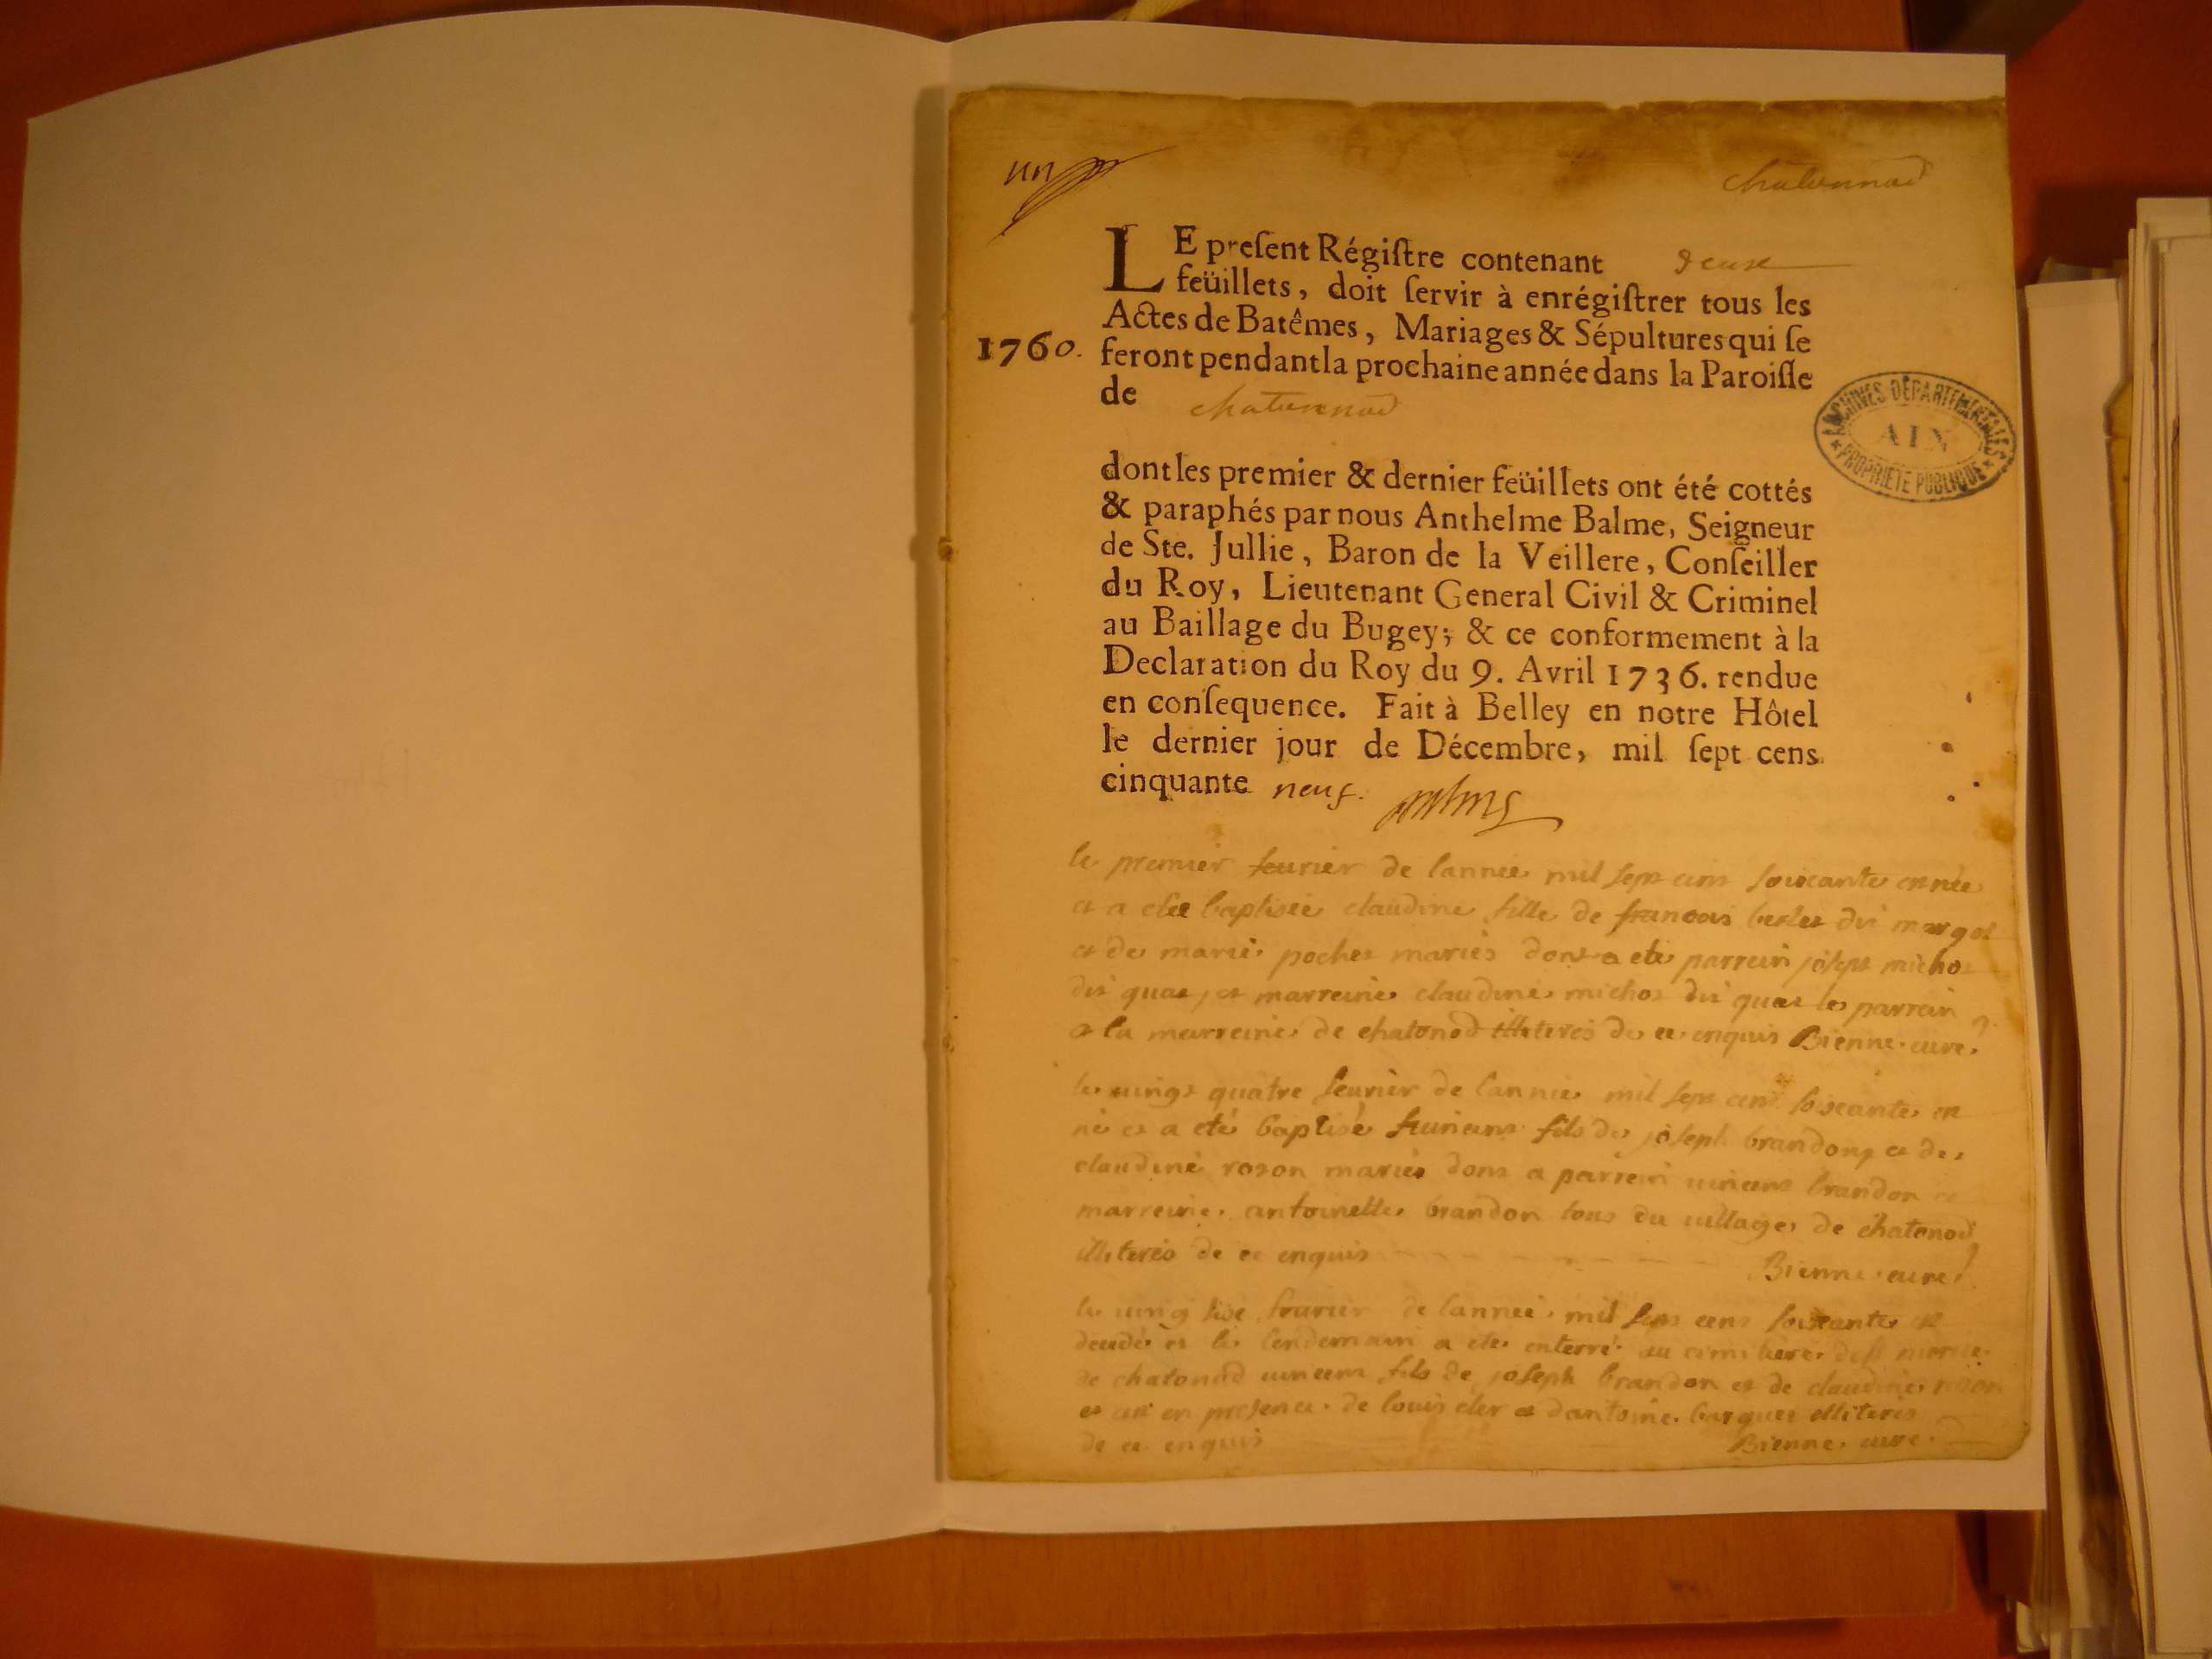 un
chatonnod
LE preſent Régiſtre contenant deux
feüillets, doit ſervir à enrégiſtrer tous les
Actes de Batêmes, Mariages & Sépultures qui ſe
1760. feront pendant la prochaine année dans la Paroiſſe
de chatonnod
ARCHIVES DÉPARTEMENTALES
AIN
PROPRIÉTÉ PUBLIQUE
dont les premier & dernier feüillets ont été cottés
& paraphés par nous Anthelme Balme, Seigneur
de Ste. Jullie, Baron de la Veillere, Conſeiller
du Roy, Lieutenant General Civil & Criminel
au Baillage du Bugey; & ce conformement à la
Declaration du Roy du 9. Avril 1736. rendue
en conſequence. Fait à Belley en notre Hôtel
le dernier jour de Décembre, mil ſept cens
cinquante neuf.
le premier feurier de lannee mil sept cens soixante est née
et a etee baptisée claudine fille de francois dit margot
et de marie pochet mariés dont a ete parrein joseph michot
dit quat, et marreine claudine michot dit quat le parrein
et la marreine de chatonod illiterés de ce enquis Bienne curé
le uingt quatre feurier de lannee mil sept cens soixante est
né et a eté baptisé uincent fils de joseph brandon et de
claudine roson mariés dont a parrein uincent brandon et
marreine antoinette brandon tous du uillage de chatonod
illiterés de ce enquis Bienne curé
le uingt six feurier de lannee mil sept cens soixante est
decedé et le lendemain a ete enterré au cimetiere
de chatonod uincent fils de joseph brandon et de claudine roson
et ce en presence de louis cler et dantoine illiterés
de ce enquis Bienne curé